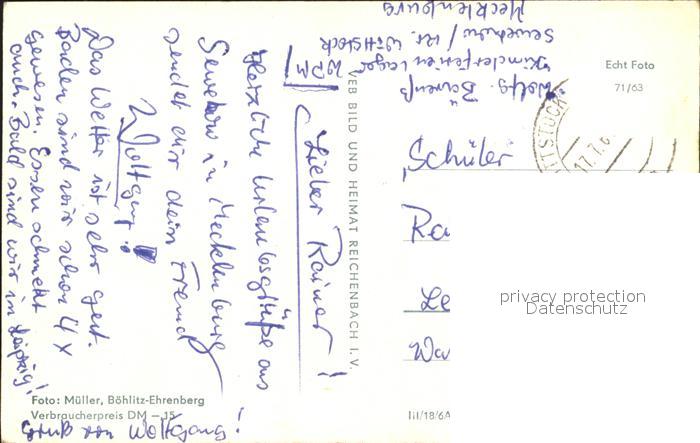 Lieber Rainer!
Herzliche Urlaubsgrüße aus
Sewekow in Mecklenburg
sendet dir dein Freund
Wolfgang!
Das Wetter ist sehr gut.
Baden sind wir schon 4x
gewesen. Essen schmeckt
auch. Bald sind wir in Leipzig!
Gruß von Wolfgang!
Foto: Müller, Böhlitz-Ehrenberg
Verbraucherpreis DM –.15
VEB BILD UND HEIMAT REICHENBACH I. V.
Wolfg.
Kinderferienlager
Sewekow / Kr. Wittstock
Mecklenburg
Echt Foto
71/63
WITTSTOCK
17.7.6
Schüler
Ra
Le
Wa
privacy protection
Datenschutz
III/18/6A